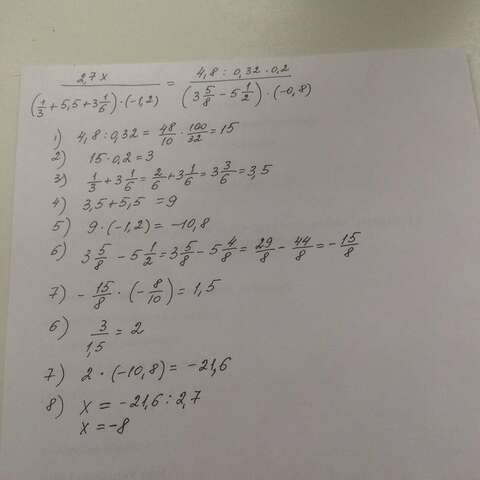 2,7x / ((1/3 + 5,5 + 3 1/6) · (-1,2)) = (4,8 : 0,32 · 0,2) / ((3 5/8 - 5 1/2) · (-0,8))
1) 4,8 : 0,32 = 48/10 · 100/32 = 15
2) 15 · 0,2 = 3
3) 1/3 + 3 1/6 = 2/6 + 3 1/6 = 3 3/6 = 3,5
4) 3,5 + 5,5 = 9
5) 9 · (-1,2) = -10,8
6) 3 5/8 - 5 1/2 = 3 5/8 - 5 4/8 = 29/8 - 44/8 = - 15/8
7) - 15/8 · (- 8/10) = 1,5
6) 3/1,5 = 2
7) 2 · (-10,8) = -21,6
8) x = -21,6 : 2,7
x = -8